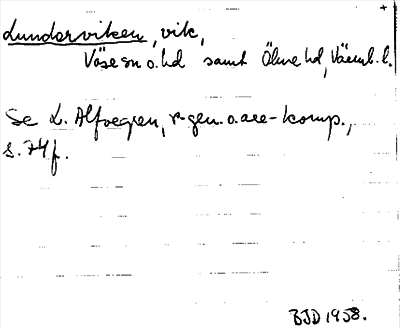 Lundarviken, vik,
Väse sn o. hd samt Ölme hd, Värml. l.
Se L. Alfvegren, r-gen. o. are-komp.,
s. 74 f.
BJD 1958.